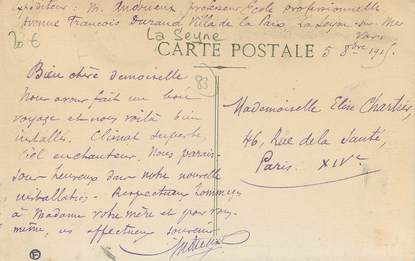 Expéditeur : M. Andrieux professeur École professionnelle
Avenue François Durand, Villa de la Paix, La Seyne-sur-Mer
Var
20 €
La Seyne
CARTE POSTALE
5 8bre 1915.
83
Bien chère demoiselle
Nous avons fait un bon
voyage et nous voilà bien
installés. Climat superbe,
Ciel enchanteur. Nous parais-
sons heureux dans notre nouvelle
installation. Respectueux hommages
à Madame votre mère et pour vous
même, un affectueux souvenir
Andrieux
Mademoiselle Elise Chartier,
46, Rue de la Santé,
Paris. XIVe